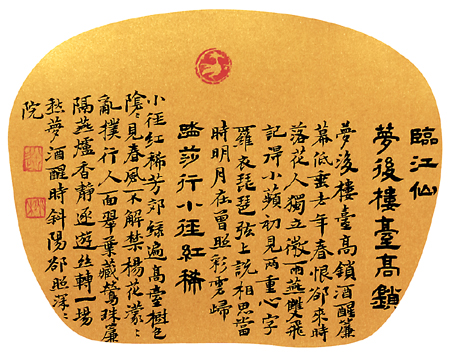 臨江仙
夢後樓臺高鎖
夢後樓臺高鎖酒醒簾
幕低垂去年春恨卻來時
落花人獨立微雨燕雙飛
記得小蘋初見兩重心字
羅衣琵琶弦上說相思當
時明月在曾照彩雲歸
踏莎行小徑紅稀
小徑紅稀芳郊綠遍高臺樹色
陰〻見春風不解禁楊花濛〻
亂撲行人面翠葉藏鶯珠簾
隔燕爐香靜逐遊絲轉一場
愁夢酒醒時斜陽卻照深〻
院